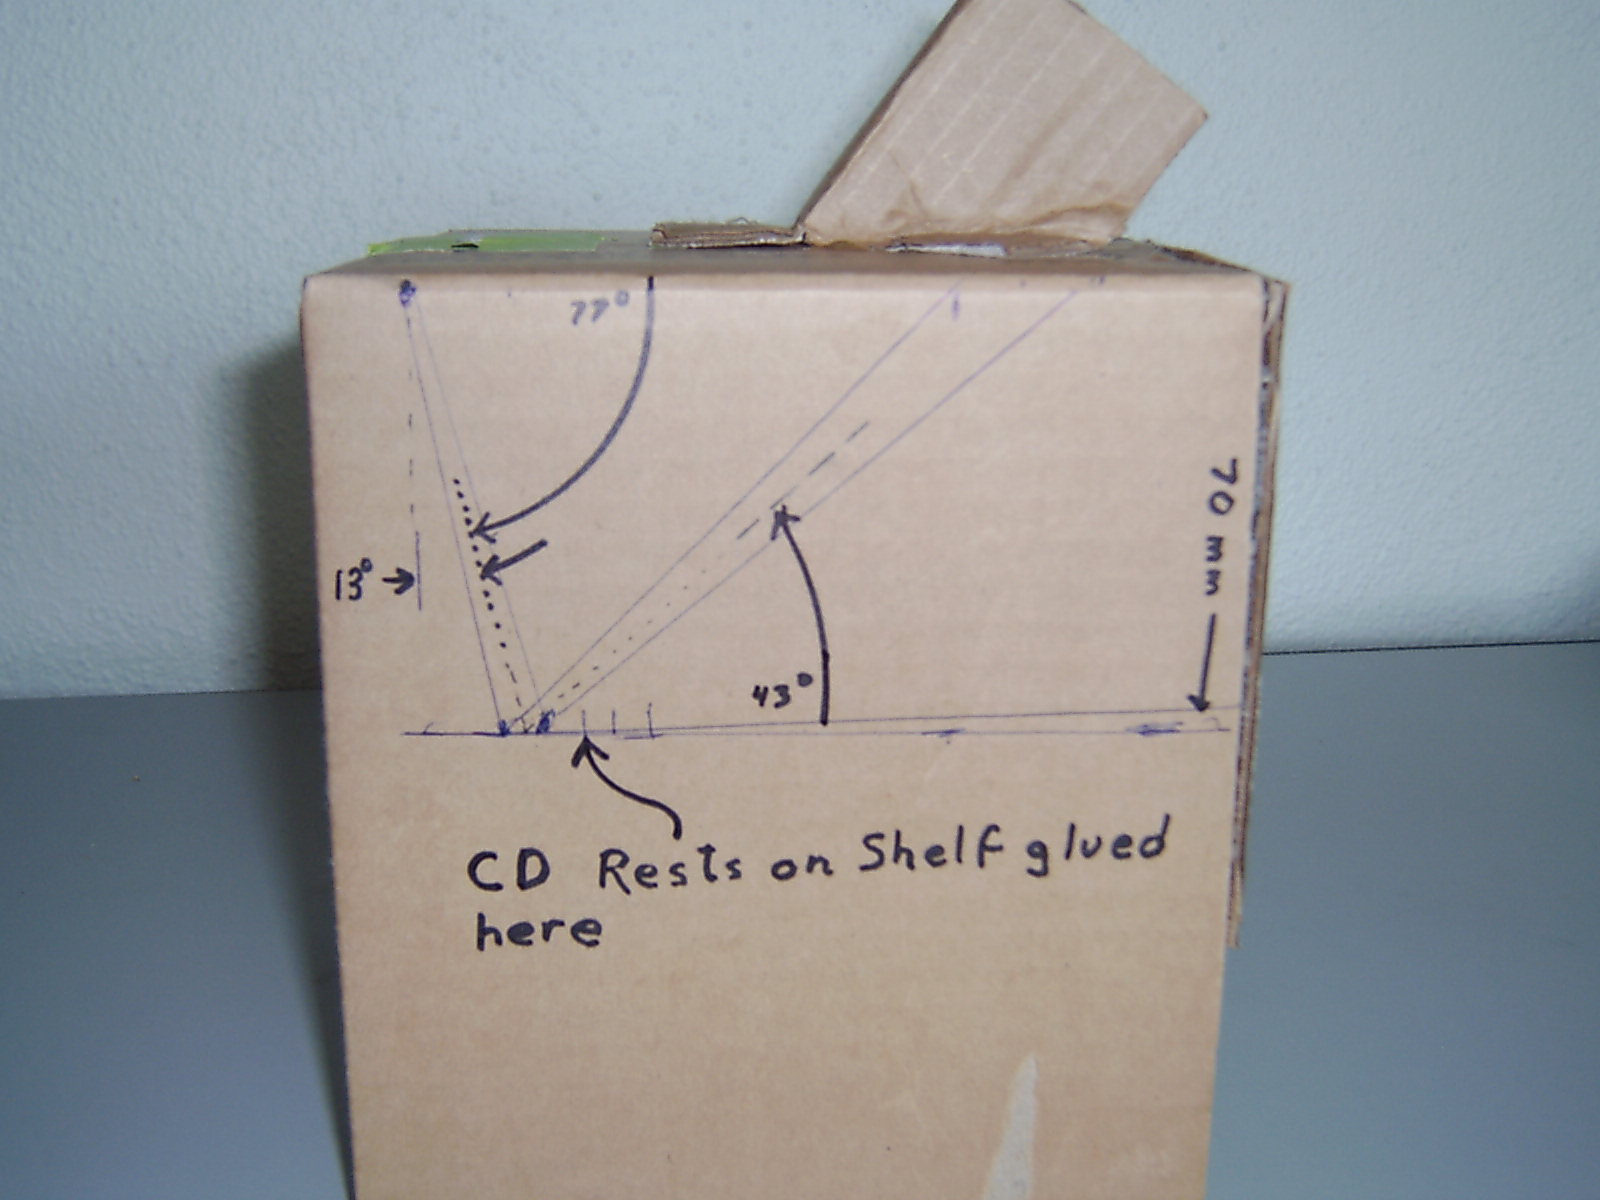 77°
13°
70 mm
43°
CD Rests on Shelf glued
here